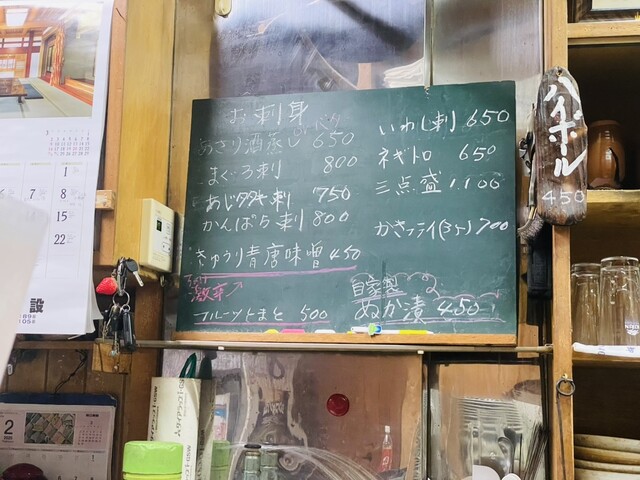 お刺身
あさり酒蒸し 650
まぐろ刺 800
あじタタキ刺 750
かんぱち刺 800
きゅうり青唐味噌 450
激辛
フルーツトマト 500
いわし刺 650
ネギトロ 650
三点盛 1.100
かきフライ(3ヶ) 700
自家製
ぬか漬 450
ハイボール
450
1
7 8
15
22
設
2